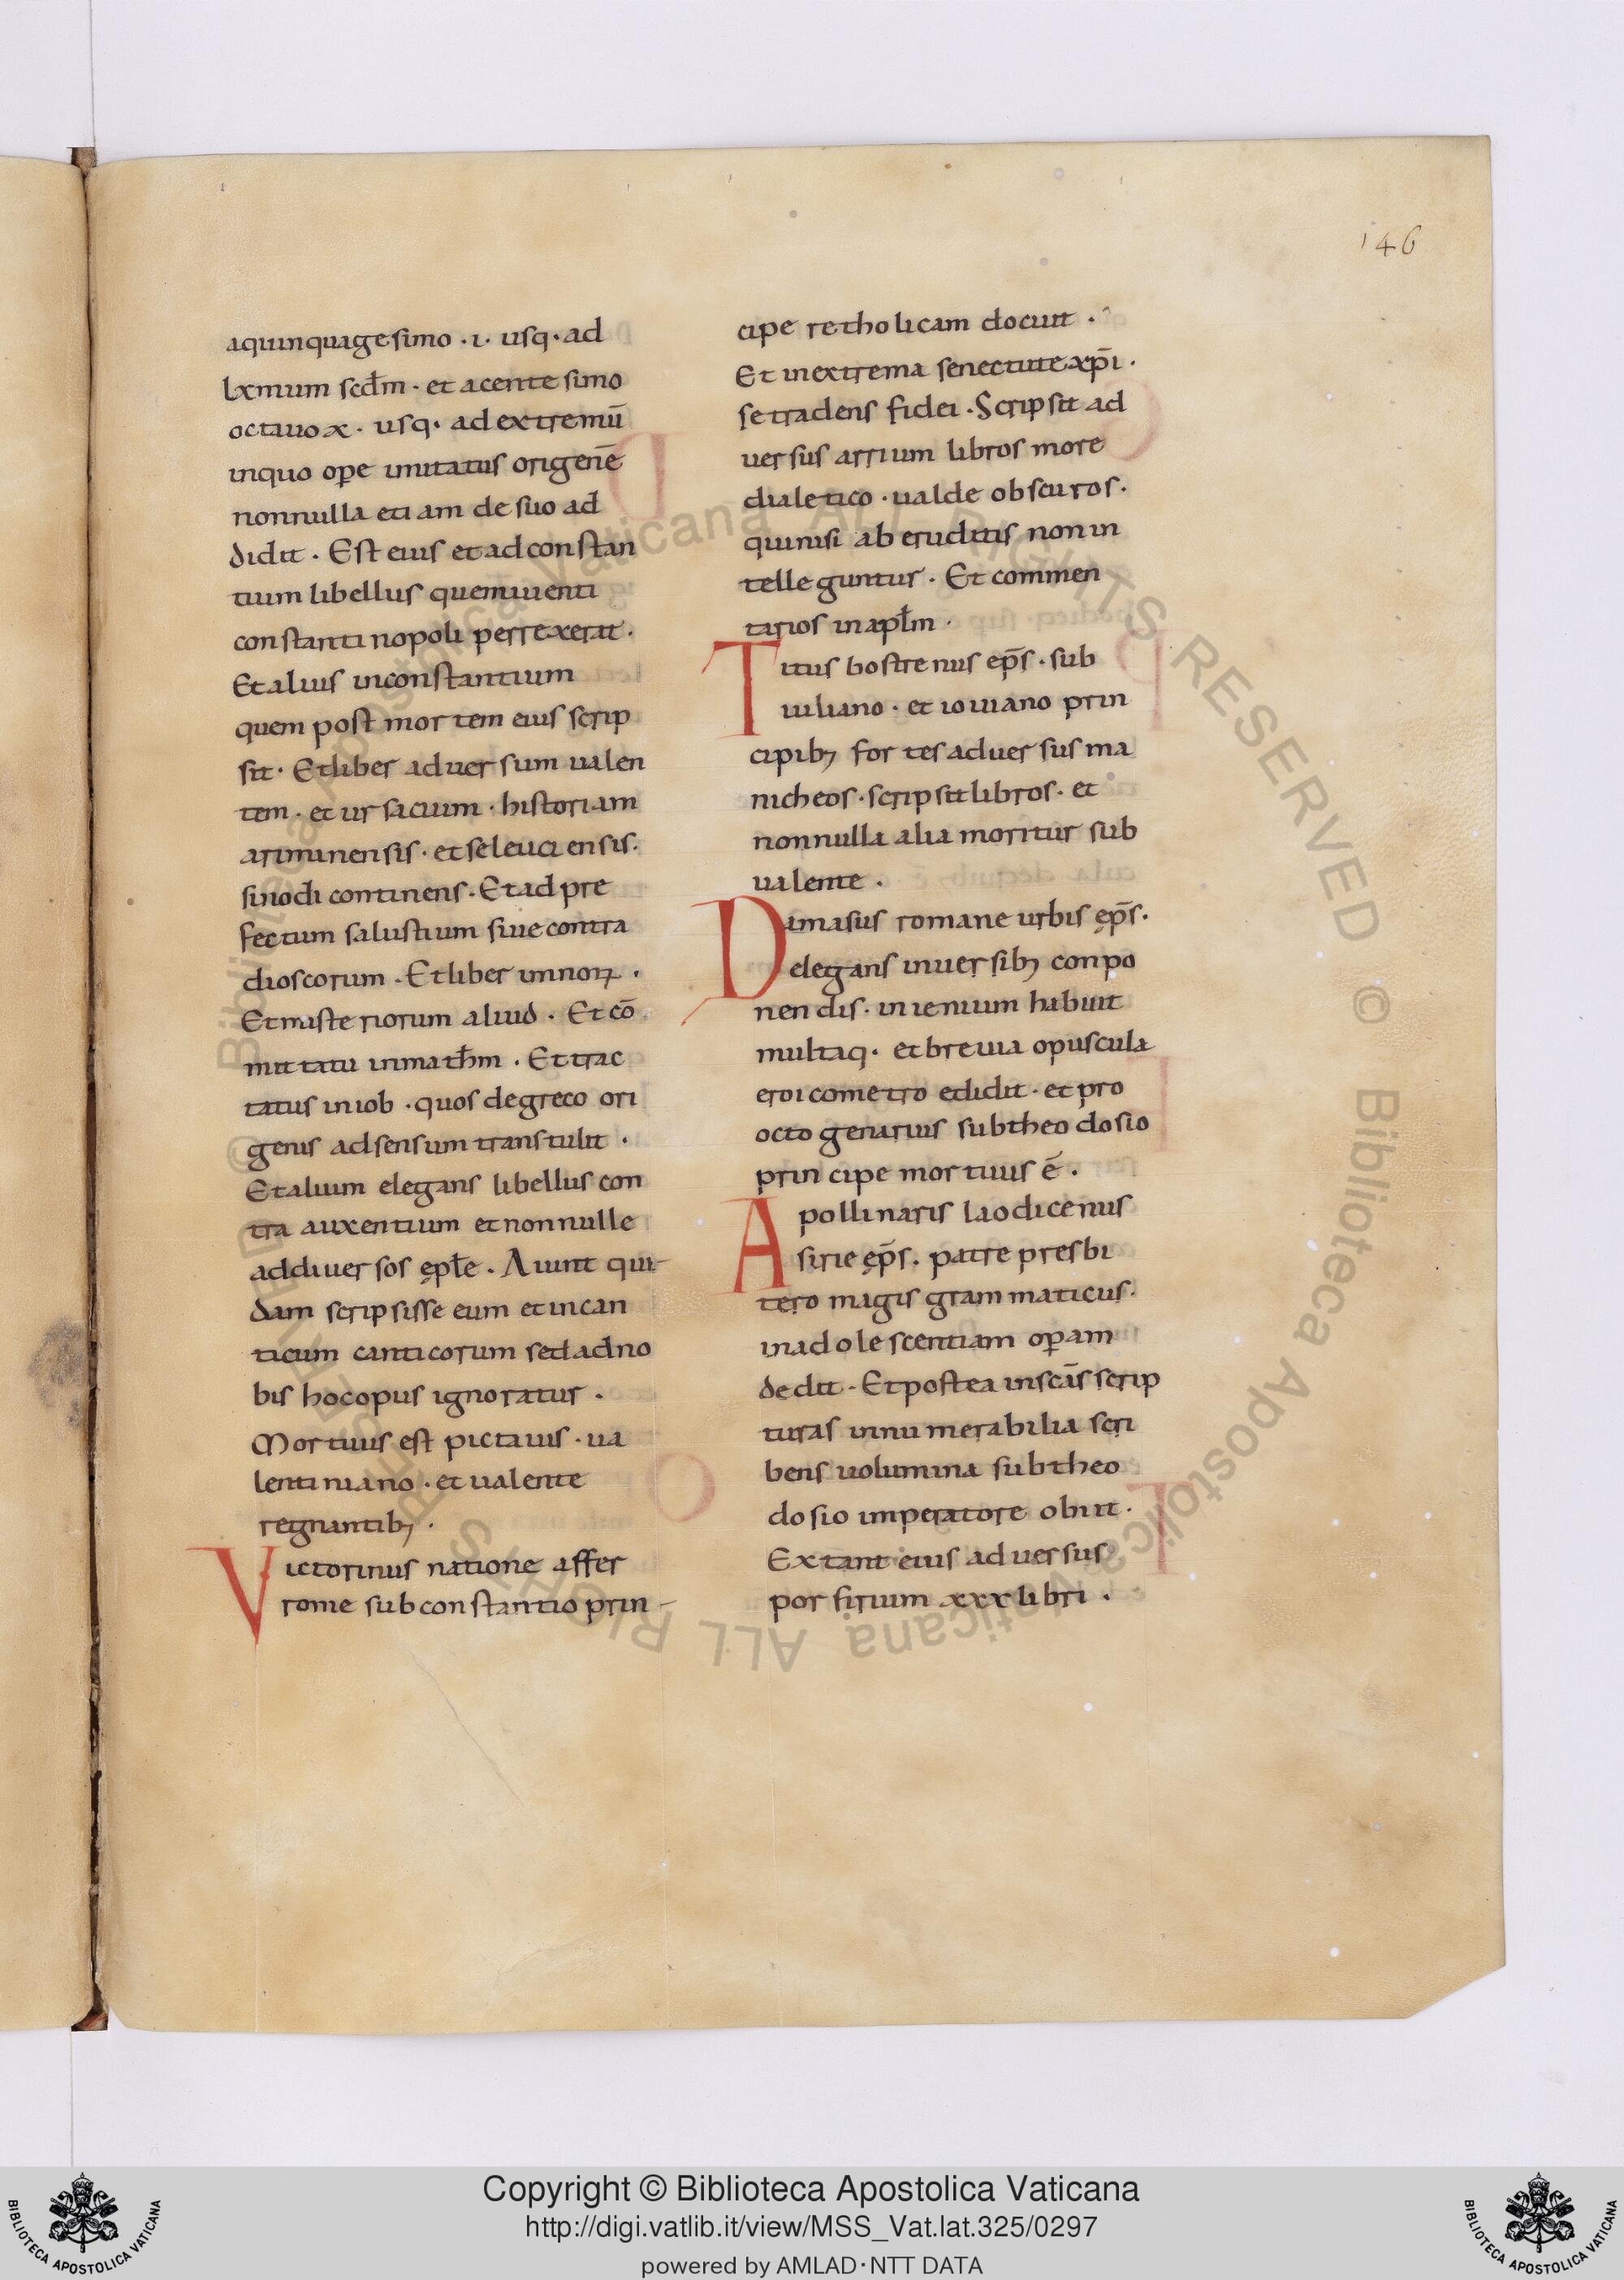 146
aquinquagesimo · i · usq· ad
lxmum scdm̄ · et acentesimo
octauo x · usq· ad extremū
inquo ope imitatus origenē
nonnulla etiam de suo ad
didit · Est eius et ad constan
tium libellus quemiuenti
constantinopoli perrexerat ·
Et alius inconstantium
quem post mortem eius scrip
sit · Et liber aduersum ualen
tem · et ursacium · historiam
ariminensis · et seleuciensis ·
sinodi continens · Et ad pre
fectum salustium siue contra
dioscorum · Et liber imnoꝝ ·
Et misteriorum aliud · Et cō
mittatu inmathm̄ · Et trac
tatus iniob · quos degreco ori
genis adsensum transtulit ·
Et alium elegans libellus con
tra auxentium et nonnulle
addiuersos ęplē · Aiunt qui
dam scripsisse eum et incan
ticum canticorum sed adno
bis hoc opus ignoratur ·
Mortuus est pictauis · ua
lentiniano · et ualente
regnantibꝫ ·
Victorinus natione affer
rome sub constantio prin
cipe retholicam docuit ·
Et inextrema senectute xp̄i ·
se tradens fidei · Scripsit ad
uersus arrium libros more
dialetico · ualde obscuros ·
quinisi ab eruditis non in
telleguntur · Et commen
tarios inaplm̄ ·
Titus bostrenus ep̄s · sub
iuliano · et iouiano prin
cipibꝫ fortes aduersus ma
nicheos · scripsit libros · et
nonnulla alia moritur sub
ualente ·
Damasus romane urbis ęp̄s ·
elegans inuersibꝫ conpo
nendis · inienium habuit
multaq· et breuia opuscula
eroicometro edidit · et pro
octogenarius sub theodosio
principe mortuus ē ·
Apollinaris laodicenus
sirie ęp̄s · patre presbi
tero magis grammaticus ·
inadolescentiam opam
dedit · Et postea inscās scrip
turas innumerabilia scri
bens uolumina sub theo
dosio imperatore obiit ·
Extant eius aduersus
porfirium xxx libri ·
© Biblioteca Apostolica Vaticana ALL RIGHTS RESERVED © Biblioteca Apostolica Vaticana ALL RIGHTS RESERVED
Copyright © Biblioteca Apostolica Vaticana
http://digi.vatlib.it/view/MSS_Vat.lat.325/0297
powered by AMLAD·NTT DATA
BIBLIOTECA APOSTOLICA VATICANA
BIBLIOTECA APOSTOLICA VATICANA